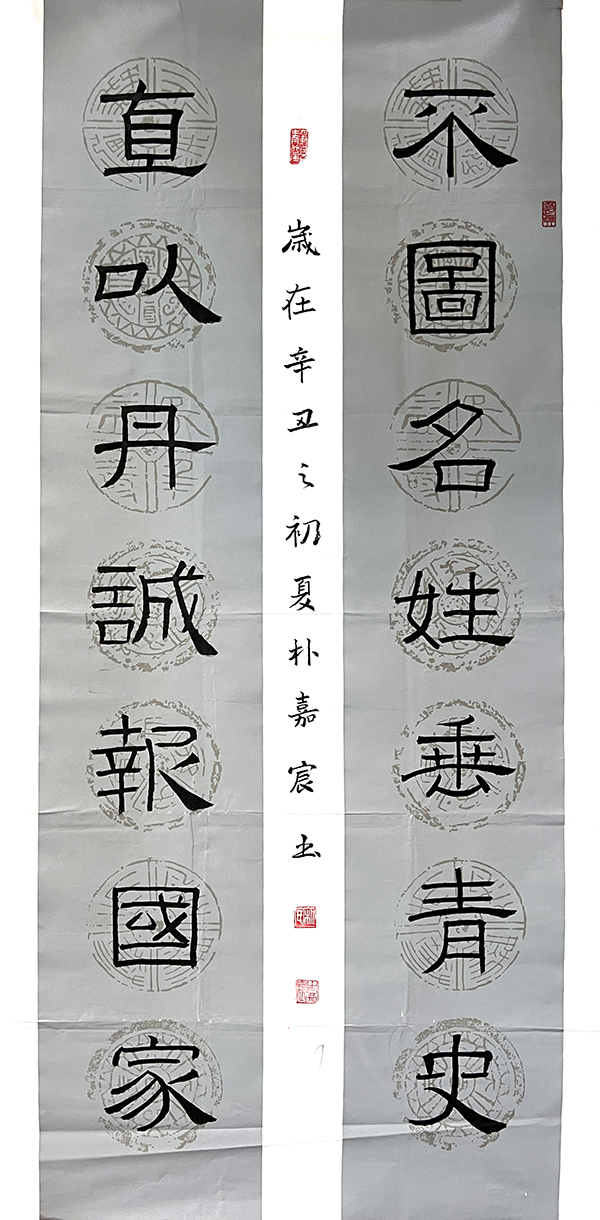 不圖名姓垂青史
直以丹誠報國家
歲在辛丑之初夏朴嘉宸书